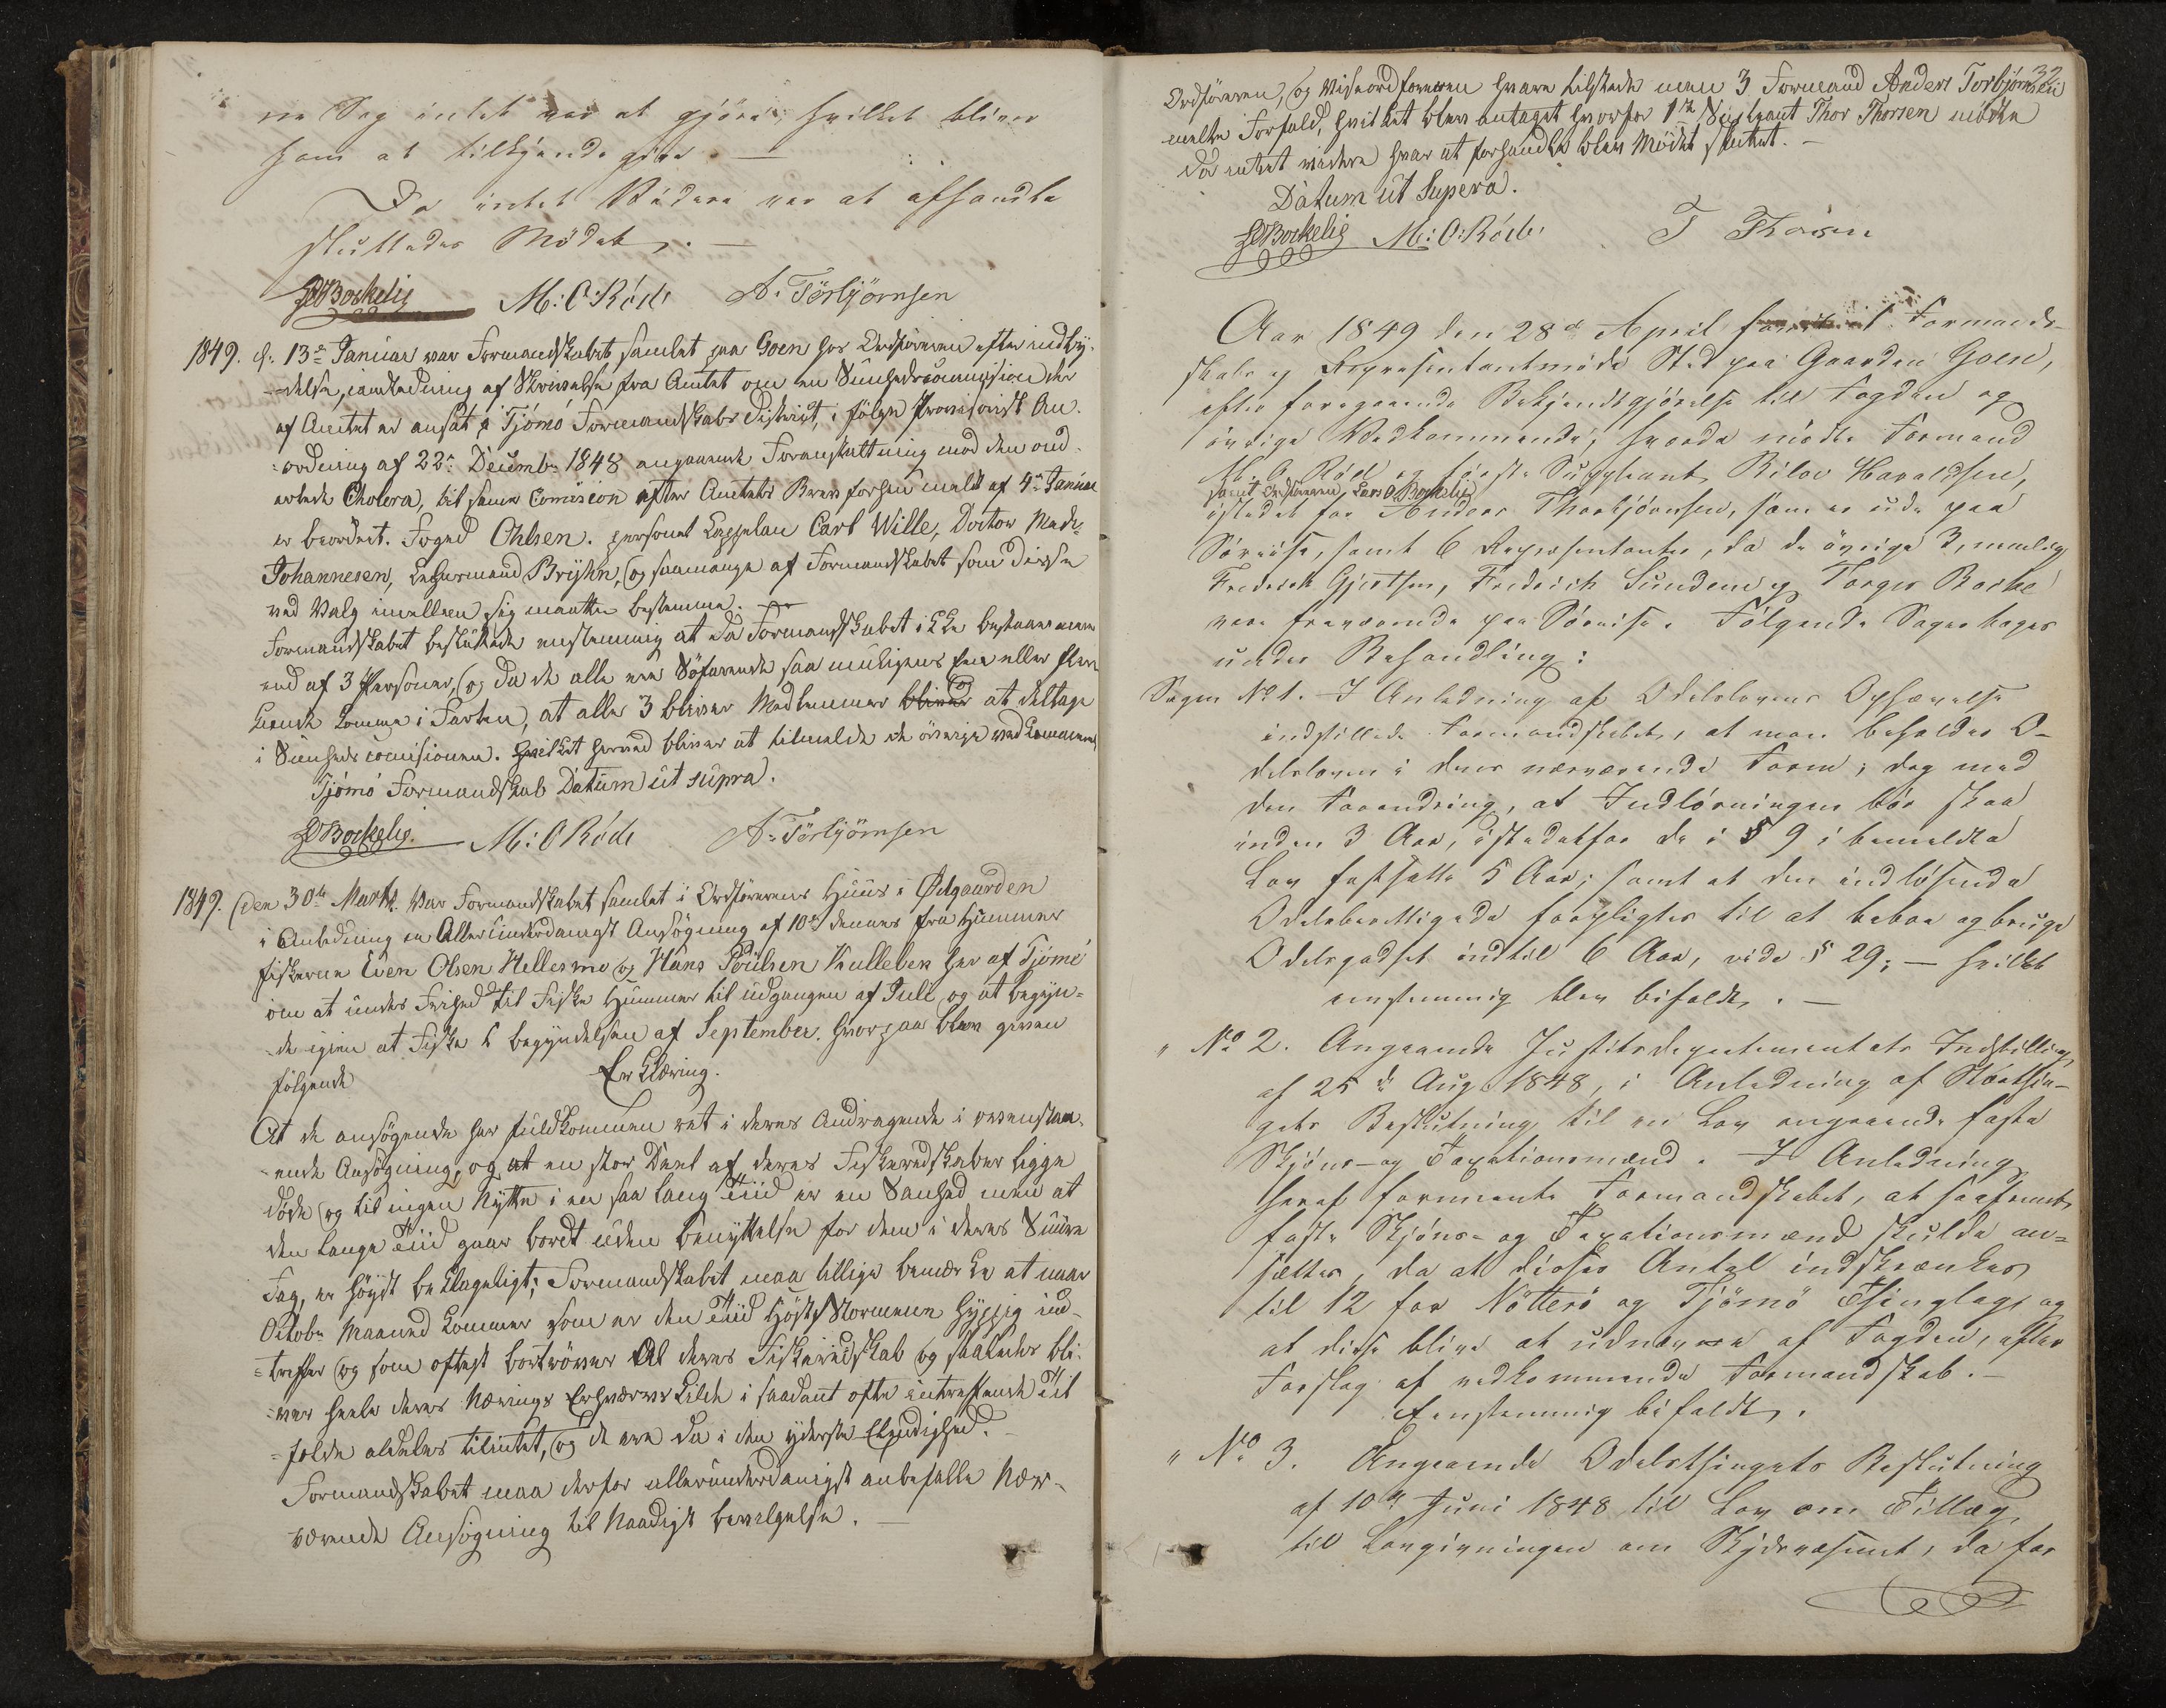 ne Sag intet var at gjöre, hvilket bliver
ham at tilkjendegive. —
Da intet Videre var at afhandle
sluttedes Mödet. —
Bockelie M: O: Röde A. Torbjörnsen
1849. d: 13de Januar var Formandskabet samlet paa Goen hos Ordföreren efter indby-
-delse, i anledning af Skrivelse fra Amtet om en Sunhedscommision der
af Amtet er ansat i Tjömö Formandskabs District, i fölge Provisorisk An-
-ordning af 22de Decembr 1848 angaaende Foranstaltning mod den ond-
artede Cholera, til samme Comision efter Amtets Brev forhen meldt af 4de Januar
er beordret. Foged Ohlsen. personel Cappelan Carl Wille, Doctor Med:
Johannesen, Lehnsmand Bryhn, og saamange af Formandskabet som disse
ved Valg imellem sig maatte bestemme. —
Formandskabet besluttede enstemmig at da Formandskabet ikke bestaar mere
end af 3 Personer, og da de alle ere Söfarende saa muligens een eller flere
kunde komme i Farten, at alle 3 bliver Medlemmer bliver at deltage
i Sunheds comisionen. Hvilket herved bliver at tilmelde de övrige vedkommende
Tjömö Formandskab Datum ut supra.
Bockelie. M: O Röde A. Torbjörnsen
1849. Den 30te Marts. Var Formandskabet samlet i Ordförerens Huus i Ødgaarden
i Anledning en Allerunderdanigst Ansögning af 10de dennes fra Hummer
fiskerne Even Olsen Hellesmo og Hans Poulsen Kulleben her af Tjömö
om at undes Frihed til Fiske Hummer til udgangen af Juli og at begyn-
-de igien at Fiske i begyndelsen af September. hvorpaa blev given
fölgende Erklæring.
At de ansögende har fuldkommen ret i deres Andragende i ovenstaa-
-ende Ansögning, og at en stor Deel af deres Fiskeredskaber ligge
döde og til ingen Nytte i en saa lang Tiid er en Sanhed men at
den lange Tiid gaar bordt uden benyttelse for dem i deres Suure
Fag, er höyst beklageligt; Formandskabet maa tillige bemærke at naar
Octobr Maaned kommer som er den Tiid Höst Stormene hyppig ind-
-treffer og som oftest bortröver Al deres Fiskeredskab og saaledes bli-
-ver heele deres Nærings Erhvervs Kilde i saadant ofte intreffende Til-
-fælde aldeles tilintet, og de ere da i den yderste Elendighed.
Formandskabet maa derfor allerunderdanigst anbefalle Nær-
værende Ansögning til Naadigst bevilgelse. —
32
Ordföreren, og Viseordföreren hvare tilstede men 3 Formand Anders Torbjörnsen
meldte Forfald, hvilket blev antaget hvorfor 1ste Supleant Thor Thorsen mödte
da intet videre hvar at forhandle blev Mödet sluttet. —
Datum ut Supera.
Bockelie M: O: Röde. T Thorsen
Aar 1849 den 28de April Formands-
skabs og Repræsentantmöde Sted paa Gaarden Goen,
efter foregaaende Bekjendtgjörelse til Fogden og
övrige Vedkommende; hvorda mödte Formand
M. O. Röd og förste Suppleant Rilov Haraldsen,
samt Ordföreren Lars O. Bockelie
istedet for Anders Thorbjörnsen, som er ude paa
Söreise, samt 6 Repræsentanter, da de övrige 3, nemlig
Frederik Gjertsen, Fredrich Sundene og Torger Borke
vare fraværende paa Söreise. Fölgende Sager toges
under Behandling:
Sagen No 1. I Anledning af Odelslovens Ophævelse
indstillede Formandskabet, at man beholder O-
delsloven i dens nærværende Form; dog med
den Forandring, at Indlösningen bör skee
inden 3 Aar, istedetfor de i § 9 i bemeldte
Lov fastsatte 5 Aar; samt at den indlösende
Odelsberettigede forpligtes til at beboe og bruge
Odelsgodset indtil 6 Aar, vide § 29; — hvilket
eenstemmig blev bifaldt. —
" No 2. Angaaende Justitsdepartementets Indstilling,
af 25de Aug. 1848, i Anledning af Storthin-
gets Beslutning til en Lov angaaende faste
Skjöns- og Taxationsmænd. I Anledning
heraf formeente Formandskabet, at saafremt
faste Skjöns- og Taxationsmænd skulde an-
sættes, da at disses Antal indskrænkes
til 12 for Nötterö og Tjömö Thinglag, og
at disse blive at udnævne af Fogden, efter
Forslag af vedkommende Formandskab. —
Eenstemmig bifaldt.
" No 3. Angaaende Odelsthingets Beslutning
af 10de Juni 1848 til Lov om Tillæg
til Lovgivningen om Skydsvæsenet, da for